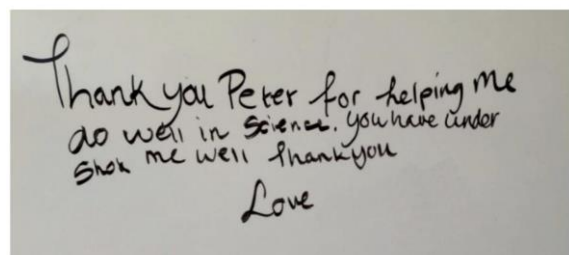 Thank you Peter for helping me
do well in Science. You have under
Shok me well Thank you
Love